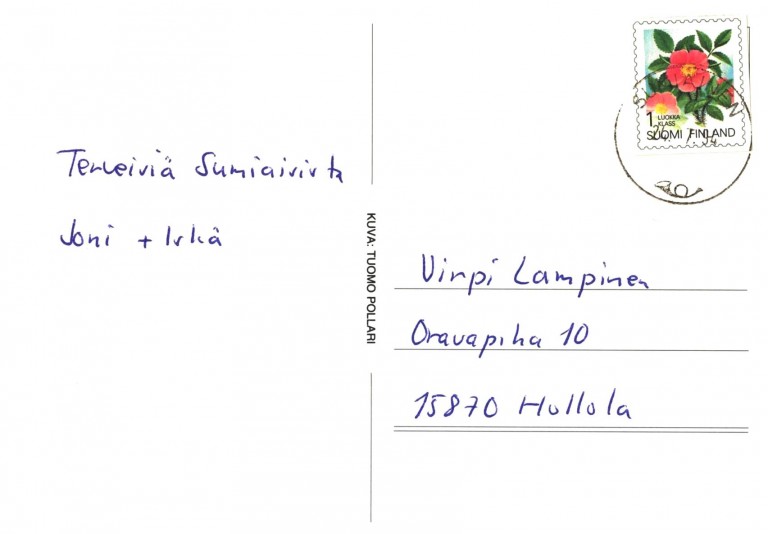 Terveisiä Sumiaisista
Joni + Irkä
KUVA: TUOMO POLLARI
1 LUOKKA
KLASS
SUOMI FINLAND
Virpi Lampinen
Oravapiha 10
15870 Hollola